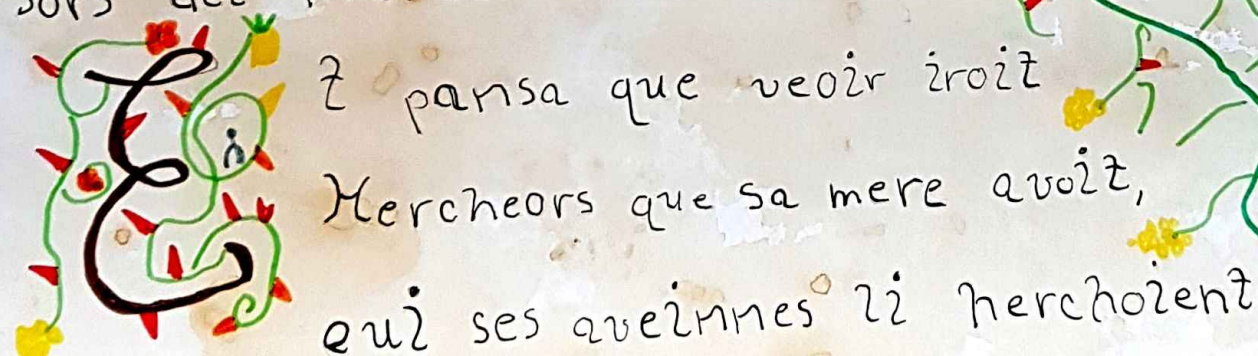 Et pansa que veoir iroit
Hercheors que sa mere avoit,
qui ses aveinnes li herchoient